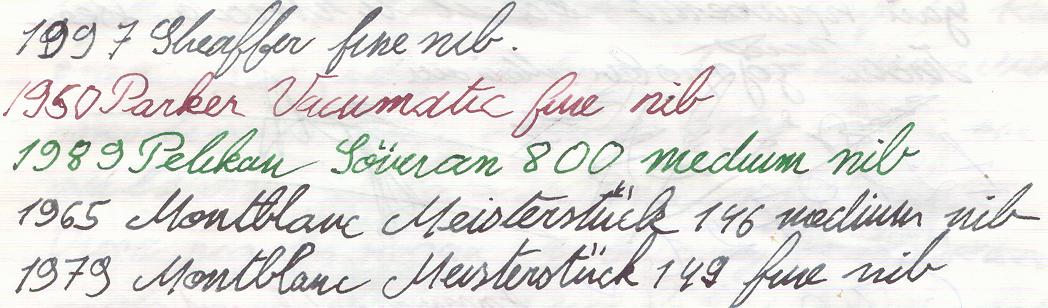 1997 Sheaffer fine nib.
1950 Parker Vacumatic fine nib
1989 Pelikan Söveran 800 medium nib
1965 Montblanc Meisterstück 146 medium nib
1979 Montblanc Meisterstück 149 fine nib